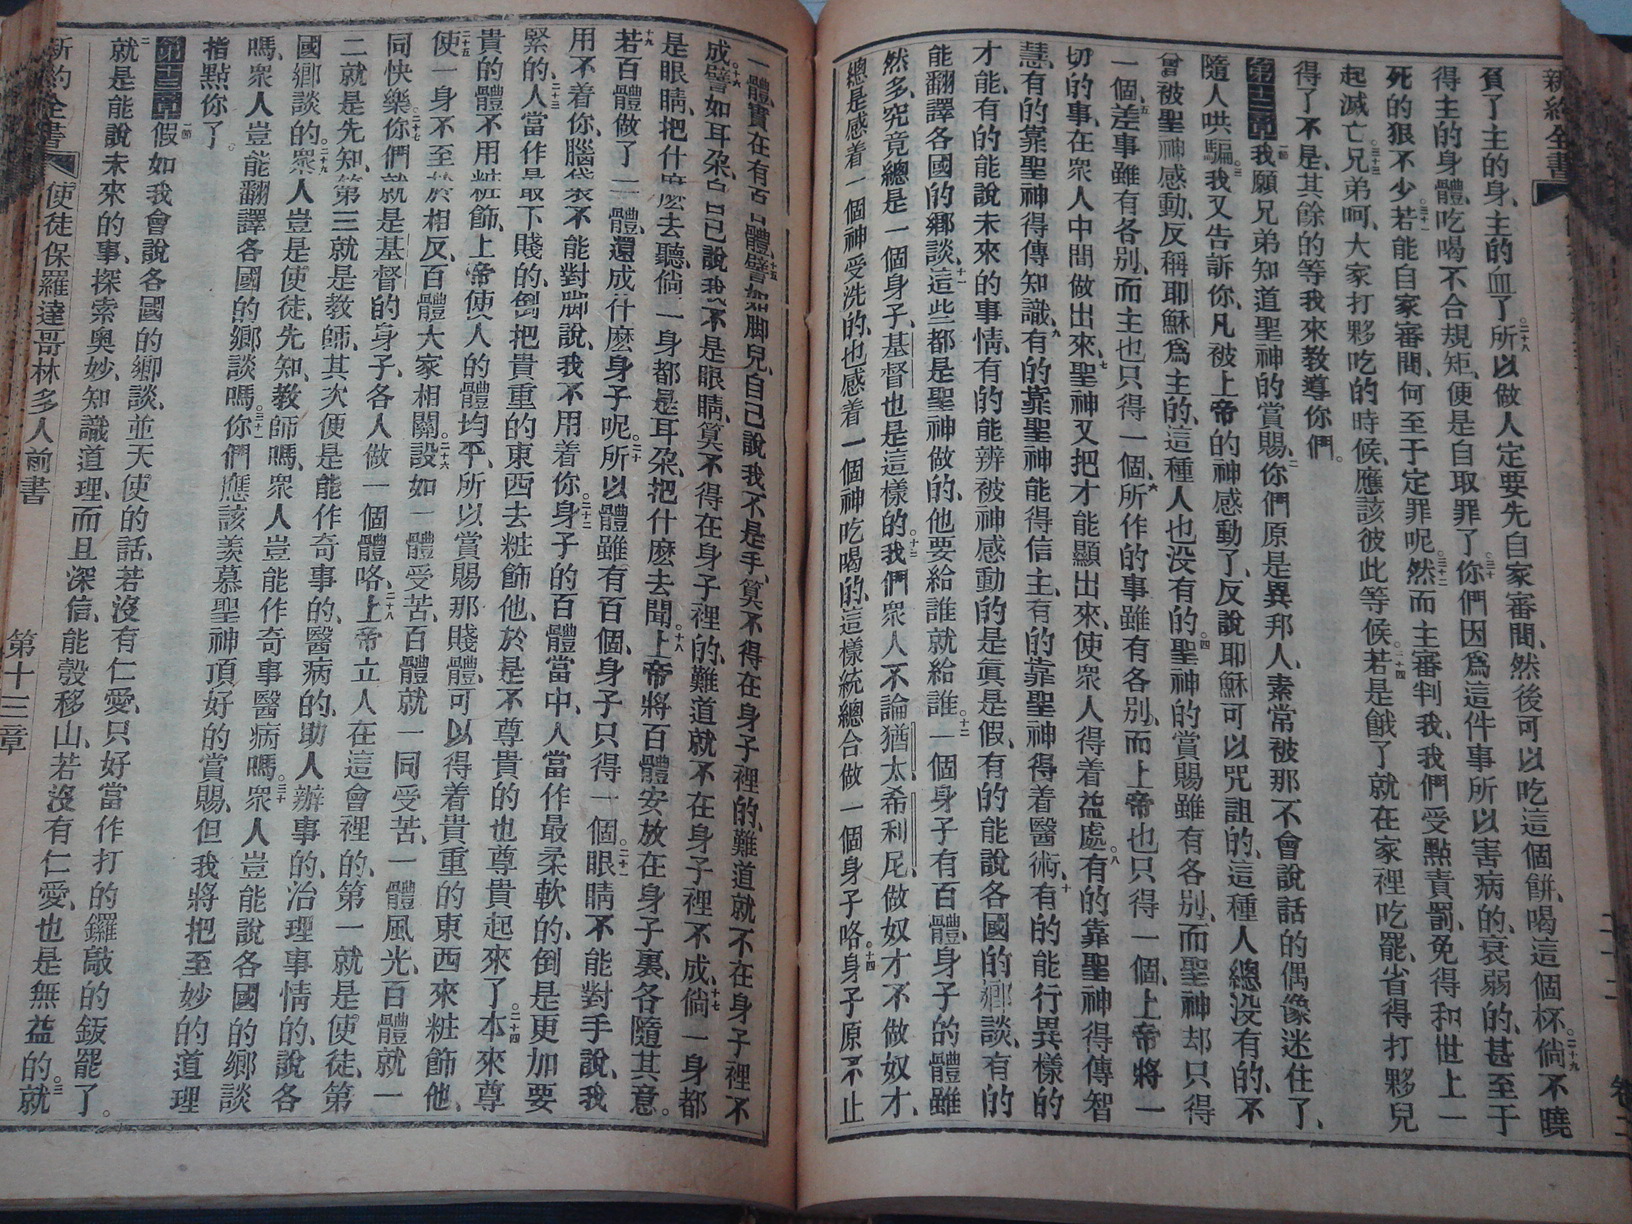 新約全書
卷二
負了主的身、主的血了。二十八所以做人定要先自家審問、然後可以吃這個餅、喝這個杯。二十九倘不曉
得主的身體、吃喝不合規矩、便是自取罪了。三十你們因爲這件事、所以害病的、衰弱的、甚至于
死的狠不少。三十一若能自家審問、何至于定罪呢。三十二然而主審判我、我們受點責罰、免得和世上一
起滅亡。三十三兄弟呵、大家打夥吃的時候、應該彼此等候。三十四若是餓了、就在家裡吃罷、省得打夥兒
得了不是、其餘的等我來教導你們。
第十二章一節我願兄弟知道聖神的賞賜、二你們原是異邦人、素常被那不會說話的偶像迷住了、
隨人哄騙。三我又告訴你、凡被上帝的神感動了、反說耶穌可以咒詛的、這種人總没有的、不
曾被聖神感動、反稱耶穌爲主的、這種人也没有的。四聖神的賞賜雖有各別、而聖神却只得
一個、五差事雖有各別、而主也只得一個、六所作的事雖有各別、而上帝也只得一個、上帝將一
切的事、在衆人中間做出來、七聖神又把才能顯出來、使衆人得着益處。八有的靠聖神得傳智
慧、有的靠聖神得傳知識、九有的靠聖神能得信主、有的靠聖神得着醫術、十有的能行異樣的
才能、有的能說未來的事情、有的能辨被神感動的是眞是假、有的能說各國的鄉談、有的
能翻譯各國的鄉談、十一這些都是聖神做的、他要給誰就給誰。十二一個身子有百體、身子的體雖
然多、究竟總是一個身子、基督也是這樣的。十三我們衆人不論猶太希利尼、做奴才不做奴才、
總是感着一個神受洗的、也感着一個神吃喝的、這樣統總合做一個身子咯。十四身子原不止
一體、實在有百體、十五譬如脚兒、自己說我不是手、算不得在身子裡的、難道就不在身子裡不
成、十六譬如耳朶、自己說我不是眼睛、算不得在身子裡的、難道就不在身子裡不成、十七倘一身都
是眼睛、把什麽去聽、倘一身都是耳朶、把什麽去聞。十八上帝將百體安放在身子裏、各隨其意。
十九若百體做了一體、還成什麽身子呢。二十所以體雖有百個、身子只得一個。二十一眼睛不能對手說、我
用不着你、腦袋不能對脚說、我不用着你。二十二身子的百體當中、人當作最柔軟的、倒是更加要
緊的、二十三人當作最下賤的、倒把貴重的東西去粧飾他、於是不尊貴的也尊貴起來了。二十四本來尊
貴的體不用粧飾、上帝使人的體均平、所以賞賜那賤體、可以得着貴重的東西來粧飾他、
二十五使一身不至於相反、百體大家相關。二十六設如一體受苦、百體就一同受苦、一體風光、百體就一
同快樂。二十七你們就是基督的身子、各人做一個體咯、二十八上帝立人在這會裡的、第一就是使徒、第
二就是先知、第三就是教師、其次便是能作奇事的、醫病的、助人辦事的、治理事情的、說各
國鄉談的。二十九衆人豈是使徒、先知、教師嗎、衆人豈能作奇事醫病嗎。三十衆人豈能說各國的鄉談
嗎、衆人豈能翻譯各國的鄉談嗎。三十一你們應該羨慕聖神頂好的賞賜、但我將把至妙的道理
指點你了。
第十三章一節假如我會說各國的鄉談、並天使的話、若沒有仁愛、只好當作打的鑼敲的鈸罷了。
二就是能說未來的事、探索奥妙、知識道理、而且深信、能彀移山、若沒有仁愛、也是無益的。三就
新約全書 使徒保羅達哥林多人前書 第十三章